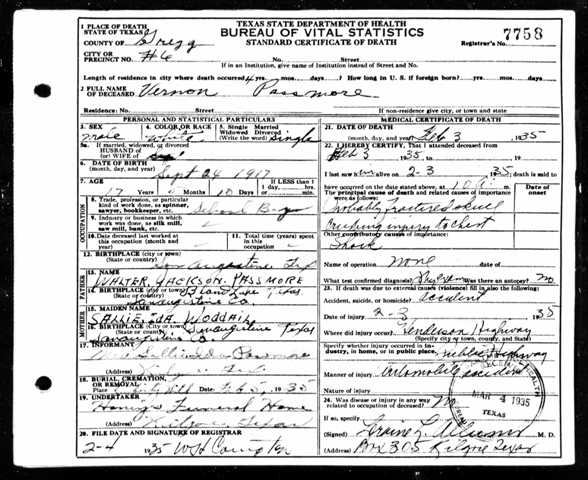 TEXAS STATE DEPARTMENT OF HEALTH
BUREAU OF VITAL STATISTICS
STANDARD CERTIFICATE OF DEATH
7758
Registrar's No.
1 PLACE OF DEATH
STATE OF TEXAS
COUNTY OF Gregg
CITY OR
PRECINCT NO. #6 No. Street
If in an Institution, give name of Institution instead of Street and No.
Length of residence in city where death occurred 4 yrs. mos. days? How long in U. S. if foreign born? yrs. mos. days
2 FULL NAME
OF DECEASED Vernon Passmore
Residence: No. Street
If non-residence give city, or town and state
PERSONAL AND STATISTICAL PARTICULARS
3 SEX male
4 COLOR OR RACE white
5 Single Married
Widowed Divorced
(Write the word) single
5a If married, widowed, or divorced
HUSBAND OF
(or) WIFE OF
6 DATE OF BIRTH
(month, day, and year) Sept 24 1917
7 AGE
17 Years 10 Days
IF LESS than 1
day, hrs.
min.
OCCUPATION
8 Trade, profession, or particular
kind of work done, as spinner,
sawyer, bookkeeper, etc. School Boy
9 Industry or business in which
work was done, as silk mill,
saw mill, bank, etc.
10 Date deceased last worked at
this occupation (month and year)
11 Total time (years)
spent in this
occupation
12 BIRTHPLACE (city or town)
(State or country) San Augustine Tex
FATHER
13 NAME
WALTER JACKSON PASSMORE
14 BIRTHPLACE (City or town)
(State or country) Texas
MOTHER
15 MAIDEN NAME
SALLIE EDA WOODAIL
16 BIRTHPLACE (City or town)
(State or country) Sanaugustine Texas
17 INFORMANT
Passmore
(Address)
18 BURIAL, CREMATION,
OR REMOVAL
Place Date Feb 5 1935
19 UNDERTAKER
Funeral Home
(Address) Texas
20 FILE DATE AND SIGNATURE OF REGISTRAR
2-4 35 WH
MEDICAL CERTIFICATE OF DEATH
21 DATE OF DEATH
(month, day, and year) Feb 3 1935
22 I HEREBY CERTIFY, That I attended deceased from
Feb 3 1935, to 19
I last saw alive on 2-3 1935; death is said to
have occurred on the date stated above, at m.
The principal cause of death and related causes of importance
were as follows:
Date of onset
Probably fractured skull
Crushing injury to chest
Other contributory causes of importance:
Shock
Name of operation none date of
What test confirmed diagnosis? Was there an autopsy? no
23 If death was due to external causes (violence) fill in also the following:
Accident, suicide, or homicide? accident
Date of injury 2-3 1935
Where did injury occur? Henderson Highway
(Specify city or town, county, and state)
Specify whether injury occurred in industry, in home, or in public place. public Highway
Manner of injury automobile accident
Nature of injury
24 Was disease or injury in any way
related to occupation of deceased? no
If so, specify
(Signed) M. D.
(Address) Box 305 Kilgore Texas
MAR 4 1935
TEXAS